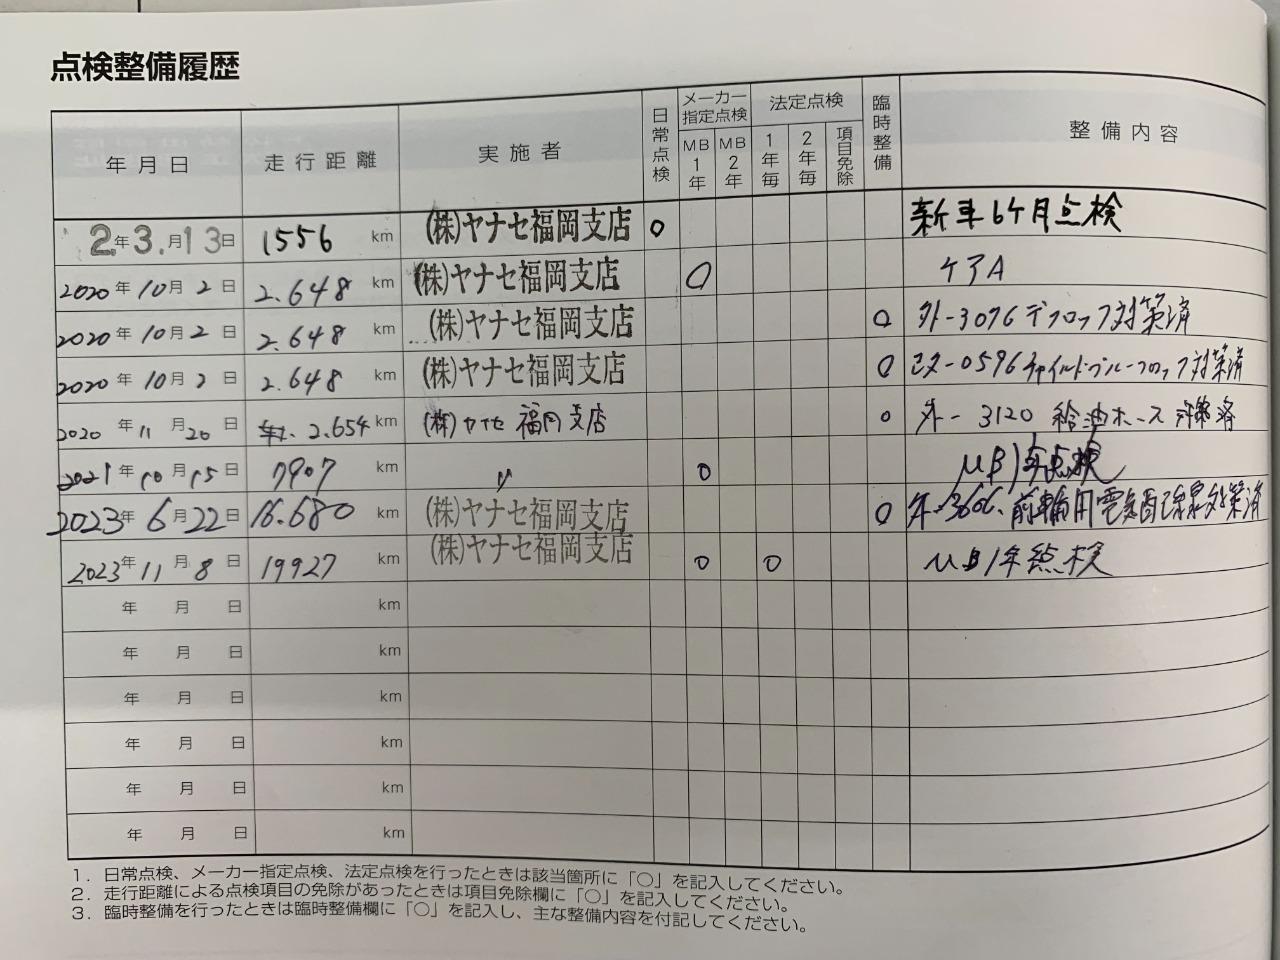 点検整備履歴
年月日 走行距離 実施者 日常点検 メーカー指定点検 MB1年 MB2年 法定点検 1年毎 2年毎 項目免除 臨時整備 整備内容
2年3.月13日 1556 km (株)ヤナセ福岡支店 ○ 新車6ヶ月点検
2020年10月2日 2.648 km (株)ヤナセ福岡支店 ○ ケアA
2020年10月2日 2.648 km (株)ヤナセ福岡支店 ○ 外-3076 デフロック対策済
2020年10月2日 2.648 km (株)ヤナセ福岡支店 ○ -0596 チャイルドプルーフロック対策済
2020年11月20日 2.654 km (株)ヤナセ福岡支店 ○ 外-3120 給油ホース対策済
2021年10月15日 7907 km 〃 ○ MB1年点検
2023年6月22日 16.680 km (株)ヤナセ福岡支店 ○ 外-3606. 前輪用電気配線対策済
2023年11月8日 19927 km (株)ヤナセ福岡支店 ○ ○ MB1年点検
年月日 km
年月日 km
年月日 km
年月日 km
年月日 km
年月日 km
1．日常点検、メーカー指定点検、法定点検を行ったときは該当箇所に「○」を記入してください。
2．走行距離による点検項目の免除があったときは項目免除欄に「○」を記入してください。
3．臨時整備を行ったときは臨時整備欄に「○」を記入し、主な整備内容を付記してください。